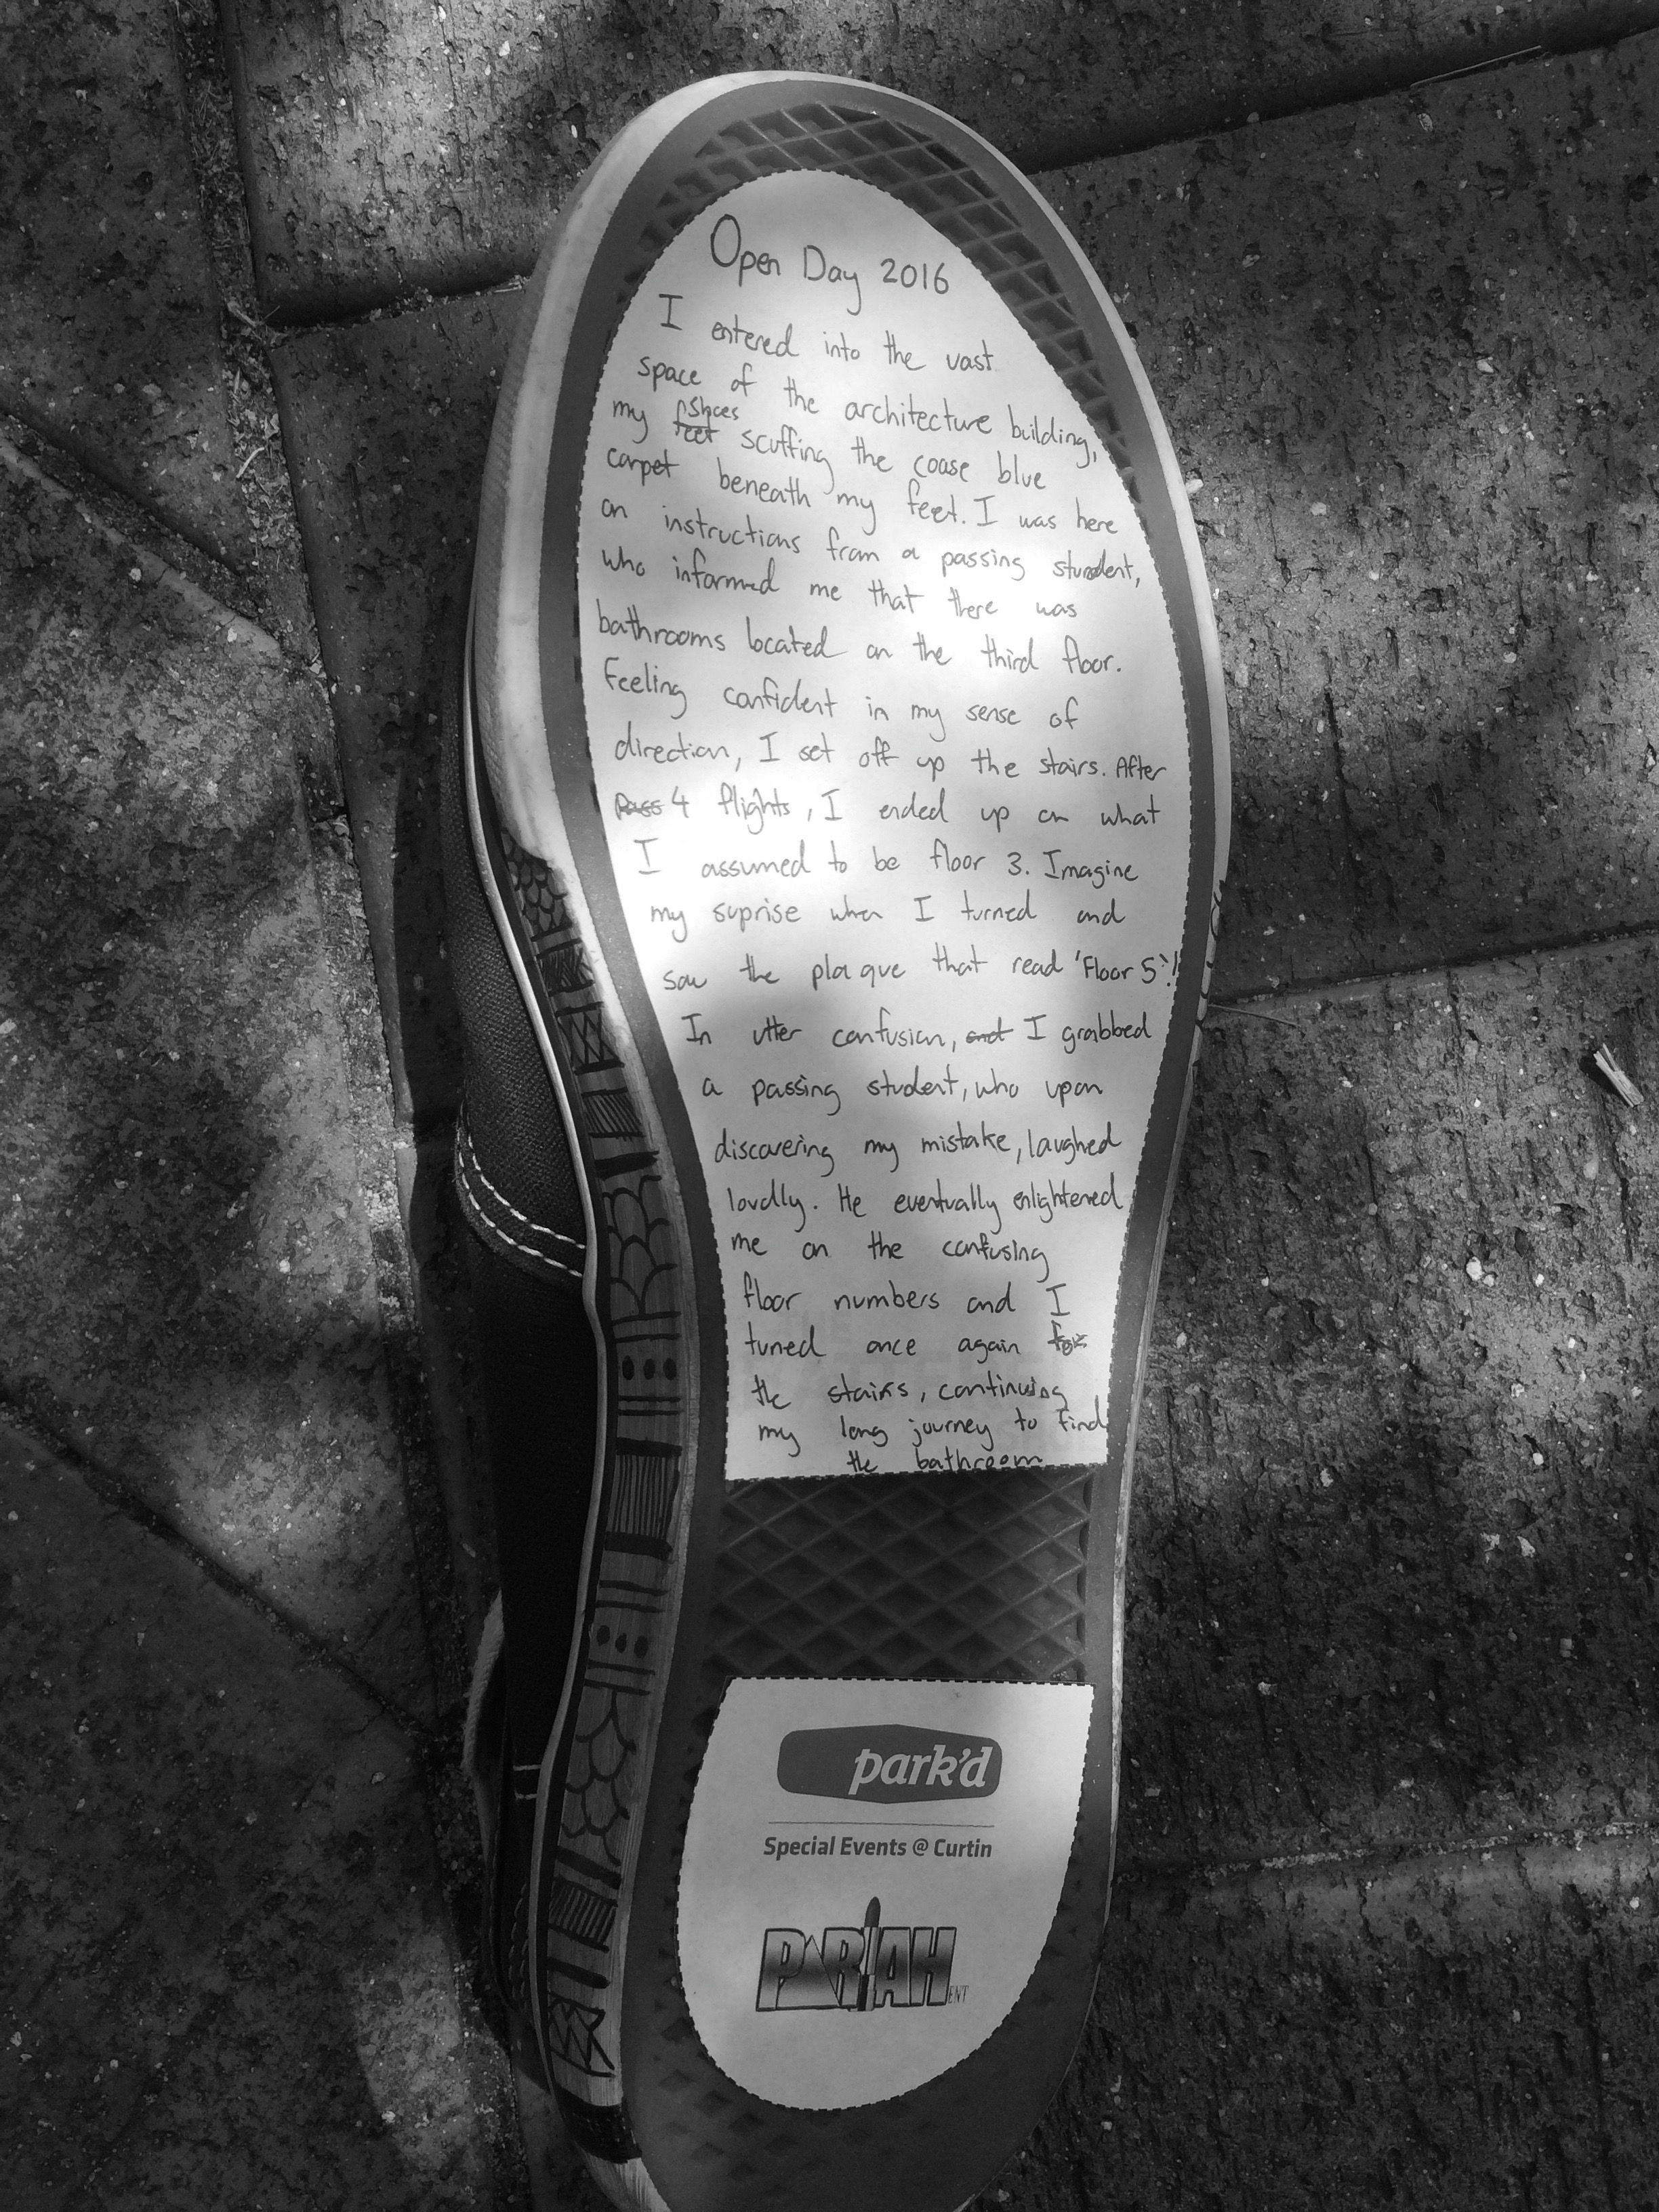 Open Day 2016
I entered into the vast
space of the architecture building,
my feet shoes scuffing the coase blue
carpet beneath my feet. I was here
on instructions from a passing student,
who informed me that there was
bathrooms located on the third floor.
Feeling confident in my sense of
direction, I set off up the stairs. After
Pass 4 flights, I ended up on what
I assumed to be floor 3. Imagine
my suprise when I turned and
saw the plaque that read 'Floor 5'!
In utter confusion, and I grabbed
a passing student, who upon
discovering my mistake, laughed
loudly. He eventually enlightened
me on the confusing
floor numbers and I
tuned once again for
the stairs, continuing
my long journey to find
the bathroom
park'd
Special Events @ Curtin
PARIAH
ENT